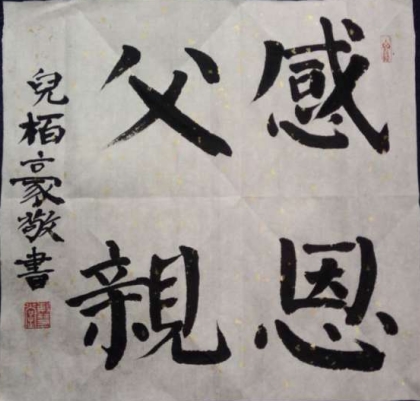 感恩
父親
兒栢豪敬書